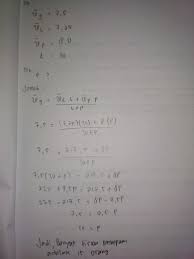 x̄g = 7,5
x̄L = 7,25
x̄p = 8,0
L = 30
P ?
Jawab
x̄g = x̄L . L + x̄p . P / L + P
7,5 = (7,25)(30) + 8(P) / 30+P
7,5 = 217,5 + 8P / 30+P
7,5(30+P) = 217,5 + 8P
225 + 7,5P = 217,5 + 8P
225 - 217,5 = 8P - 7,5P
7,5 = 0,5 P
= P
Jadi, banyak siswa perempuan
adalah 15 orang